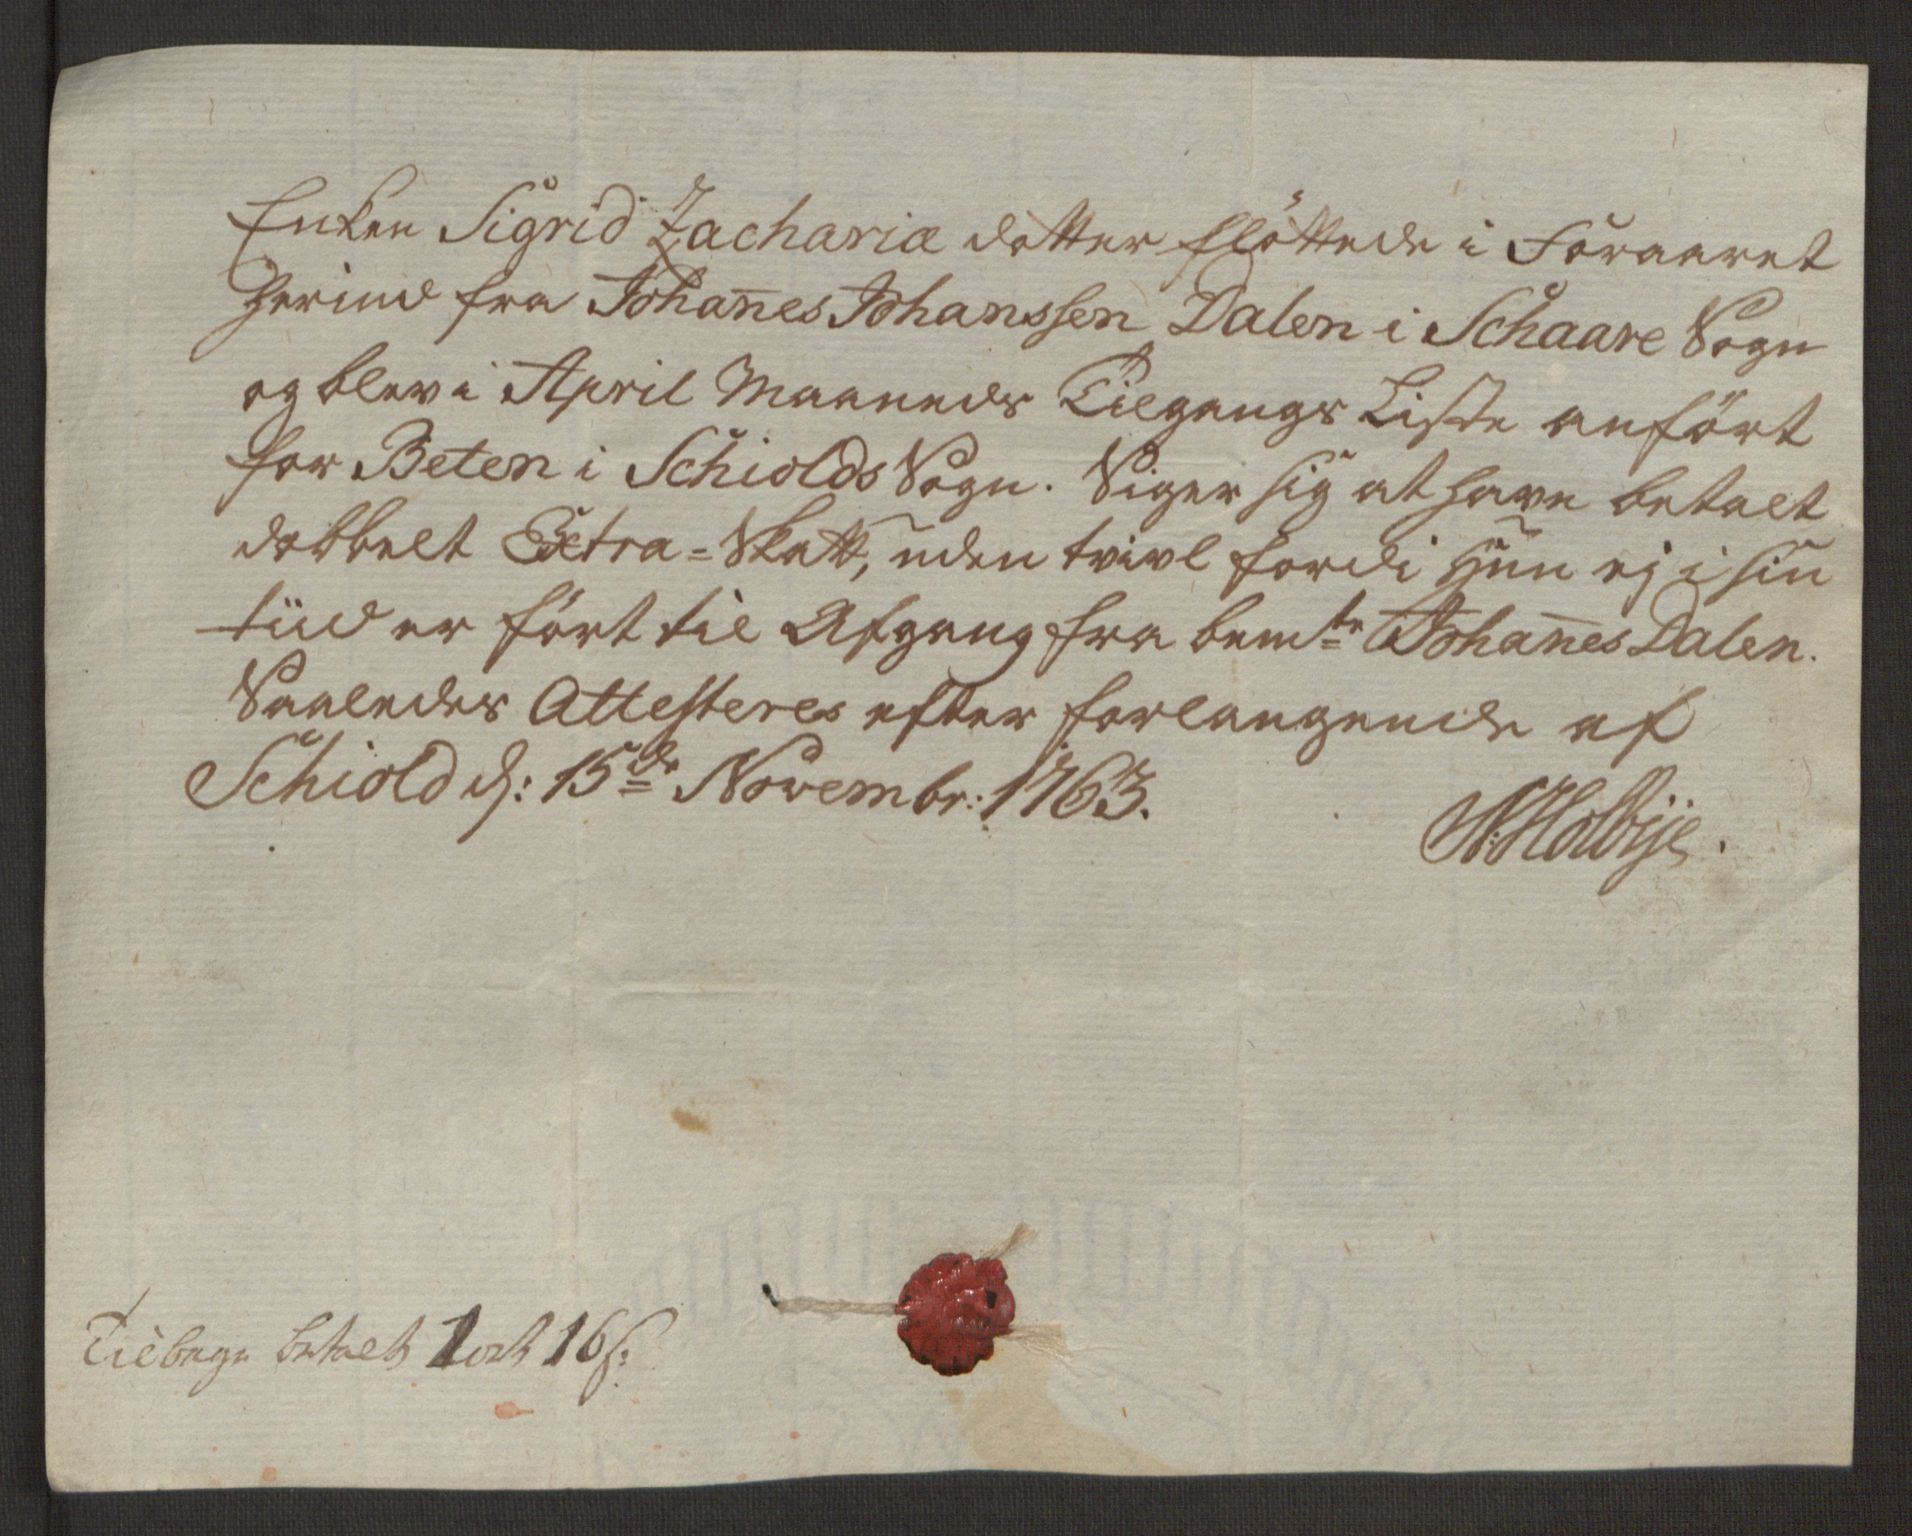 Enken Sigrid Zachariæ dotter flöttede i Foraaret
herind fra Johan̄es Johanssen Dalen i Schaare Sogn
og blev i April Maaneds Tilgangs Liste anfört
for Beten i Schiolds Sogn. Siger sig at have betalt
dobbelt Extra=Skatt, uden tvivl fordi Hun ej i sin
tiid er fört til Afgang fra bemte Johan̄es Dalen.
Saaledes Attesteres efter forlangende af
Schiold d: 15de Novembr: 1763.
N: Holbye.
Tilbage betalt 1 ort 16 s: